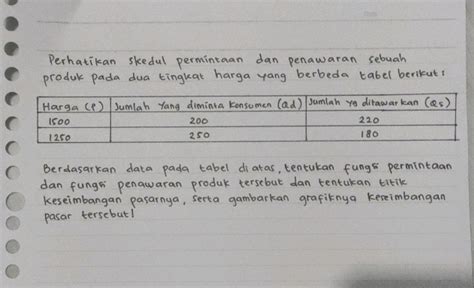 Perhatikan skedul permintaan dan penawaran sebuah
produk pada dua tingkat harga yang berbeda tabel berikut :
Harga (P) Jumlah Yang diminta konsumen (Qd) Jumlah yg ditawarkan (Qs)
1500 200 220
1250 250 180
Berdasarkan data pada tabel di atas, tentukan fungsi permintaan
dan fungsi penawaran produk tersebut dan tentukan titik
keseimbangan pasarnya, serta gambarkan grafiknya keseimbangan
pasar tersebut!